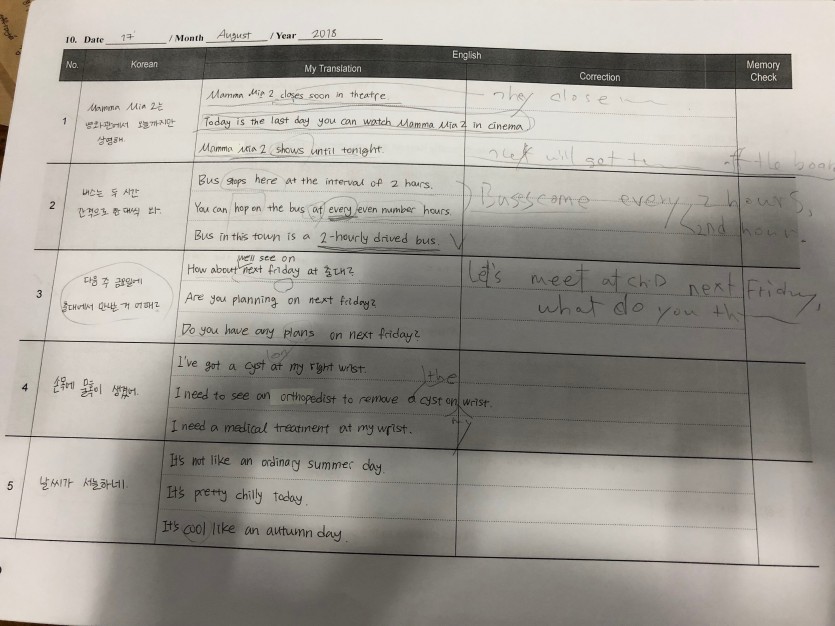 10. Date 17 / Month August / Year 2018
No. Korean English Memory Check
My Translation Correction
1
Mamma Mia 2는
영화관에서 오늘까지만
상영해.
Mamma Mia 2 closes soon in theatre.
Today is the last day you can watch Mamma Mia 2 in cinema
Mamma Mia 2 shows until tonight.
They close
will get off the boar
2
버스는 두 시간
간격으로 한 대씩 와.
Bus stops here at the interval of 2 hours.
You can hop on the bus at every even number hours.
Bus in this town is a 2-hourly drived bus.
Buses come every 2 hours,
2nd hour.
3
다음 주 금요일에
홍대에서 만나는 거 어때?
we'll see on
How about next friday at 홍대?
Are you planning on next friday?
Do you have any plans on next friday?
Let's meet at next Friday,
what do you th
4
손목에 물혹이 생겼어.
on
I've got a cyst at my right wrist.
the
I need to see an orthopedist to remove a cyst on wrist.
my
I need a medical treatment at my wrist.
5
날씨가 서늘하네.
It's not like an ordinary summer day.
It's pretty chilly today.
It's cool like an autumn day.